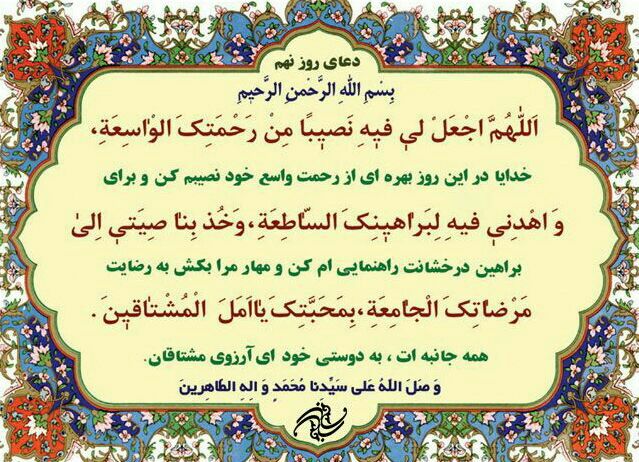 دعای روز نهم
بِسْمِ اللهِ الرَّحْمنِ الرَّحیمِ
اَللّٰهُمَّ اجْعَلْ لي فیهِ نَصیبًا مِنْ رَحْمَتِکَ الْواسِعَةِ،
خدایا در این روز بهره ای از رحمت واسع خود نصیبم کن و برای
وَ اهْدِني فیهِ لِبَراهینِکَ السّاطِعَةِ،وَخُذ بِنا صِیَتي اِلیٰ
براهین درخشانت راهنمایی ام کن و مهار مرا بکش به رضایت
مَرْضاتِکَ الْجامِعَةِ،بِمَحَبَّتِکَ یا اَمَلَ الْمُشْتاقینَ.
همه جانبه ات ، به دوستی خود ای آرزوی مشتاقان.
وَ صَلَ اللهُ عَلی سَیِّدنا مُحَمَدٍ وَ الِهِ الطّاهِرینَ